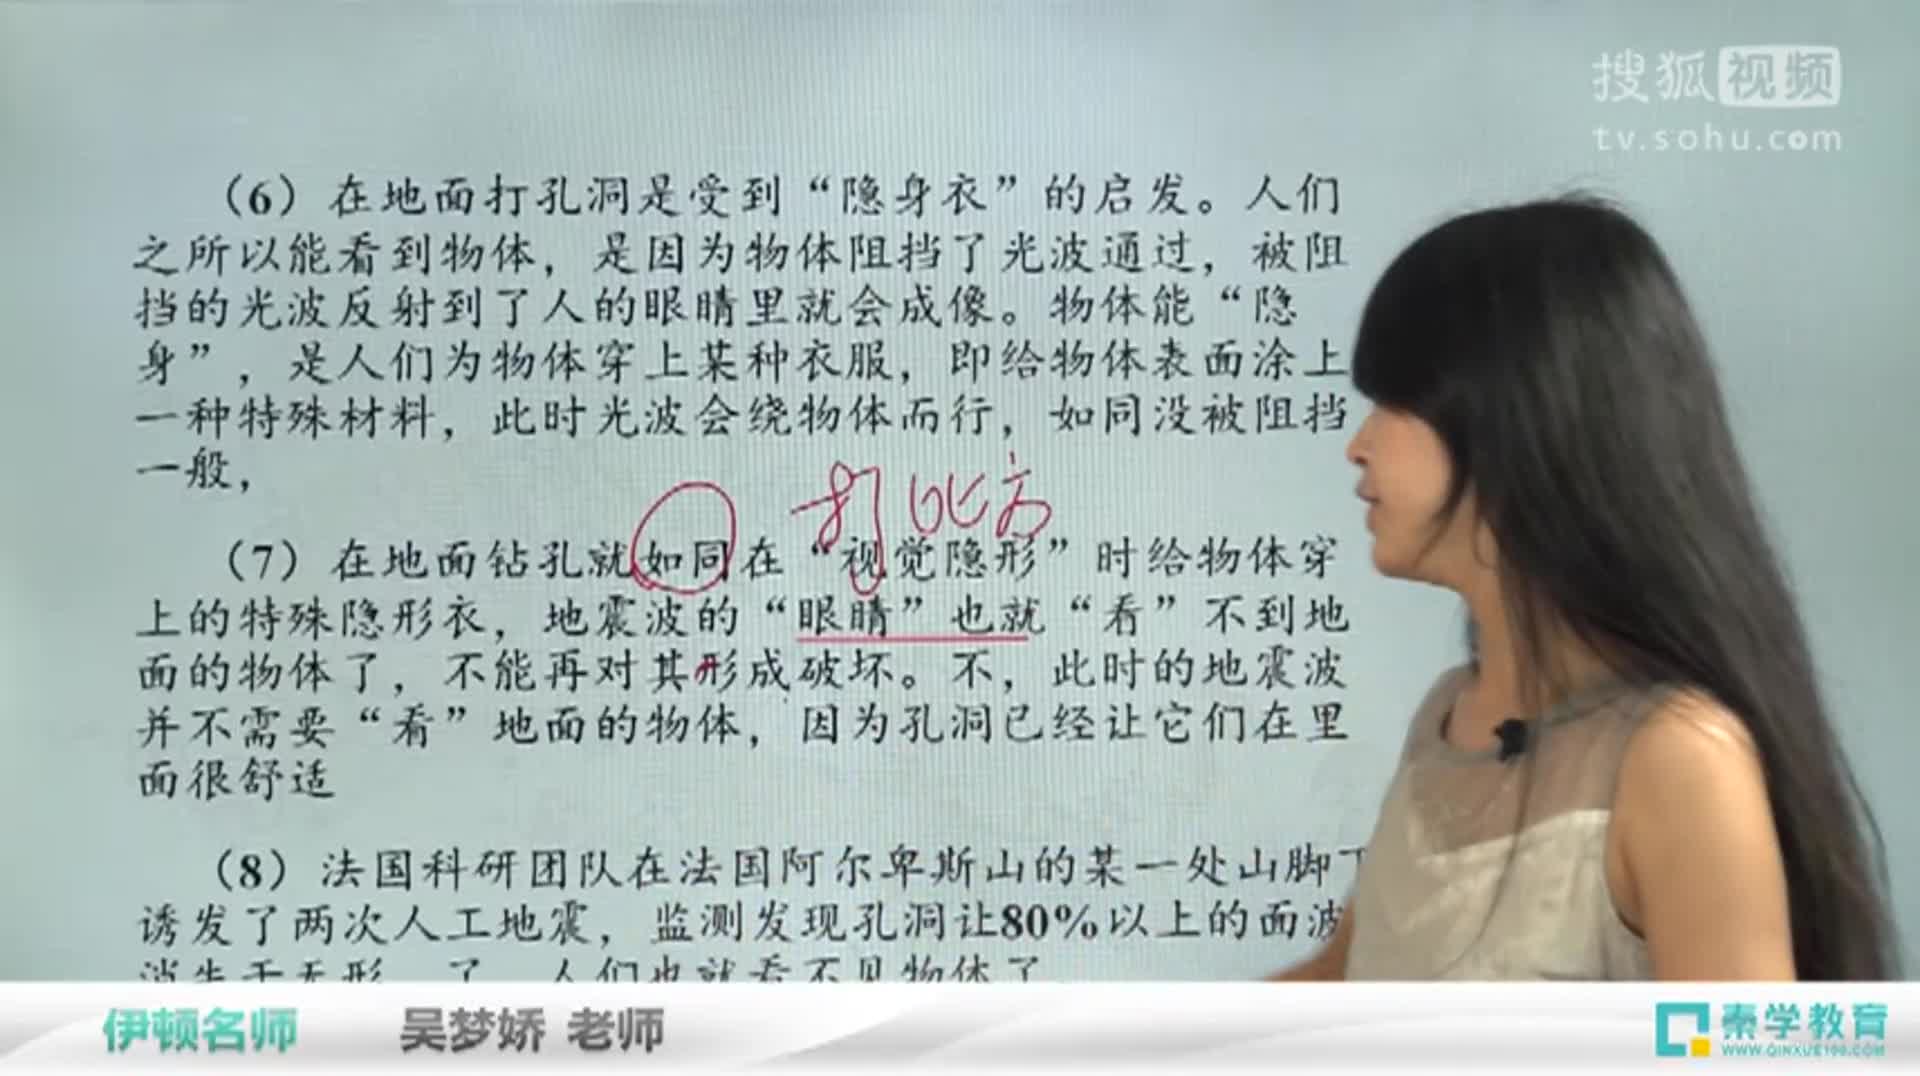 搜狐视频
tv.sohu.com
（6）在地面打孔洞是受到“隐身衣”的启发。人们
之所以能看到物体，是因为物体阻挡了光波通过，被阻
挡的光波反射到了人的眼睛里就会成像。物体能“隐
身”，是人们为物体穿上某种衣服，即给物体表面涂上
一种特殊材料，此时光波会绕物体而行，如同没被阻挡
一般，
打比方
（7）在地面钻孔就如同在“视觉隐形”时给物体穿
上的特殊隐形衣，地震波的“眼睛”也就“看”不到地
面的物体了，不能再对其形成破坏。不，此时的地震波
并不需要“看”地面的物体，因为孔洞已经让它们在里
面很舒适
（8）法国科研团队在法国阿尔卑斯山的某一处山脚下
诱发了两次人工地震，监测发现孔洞让80%以上的面波
消失于无形。了，人们也就看不见物体了
伊顿名师 吴梦娇 老师
秦学教育
WWW.QINXUE100.COM